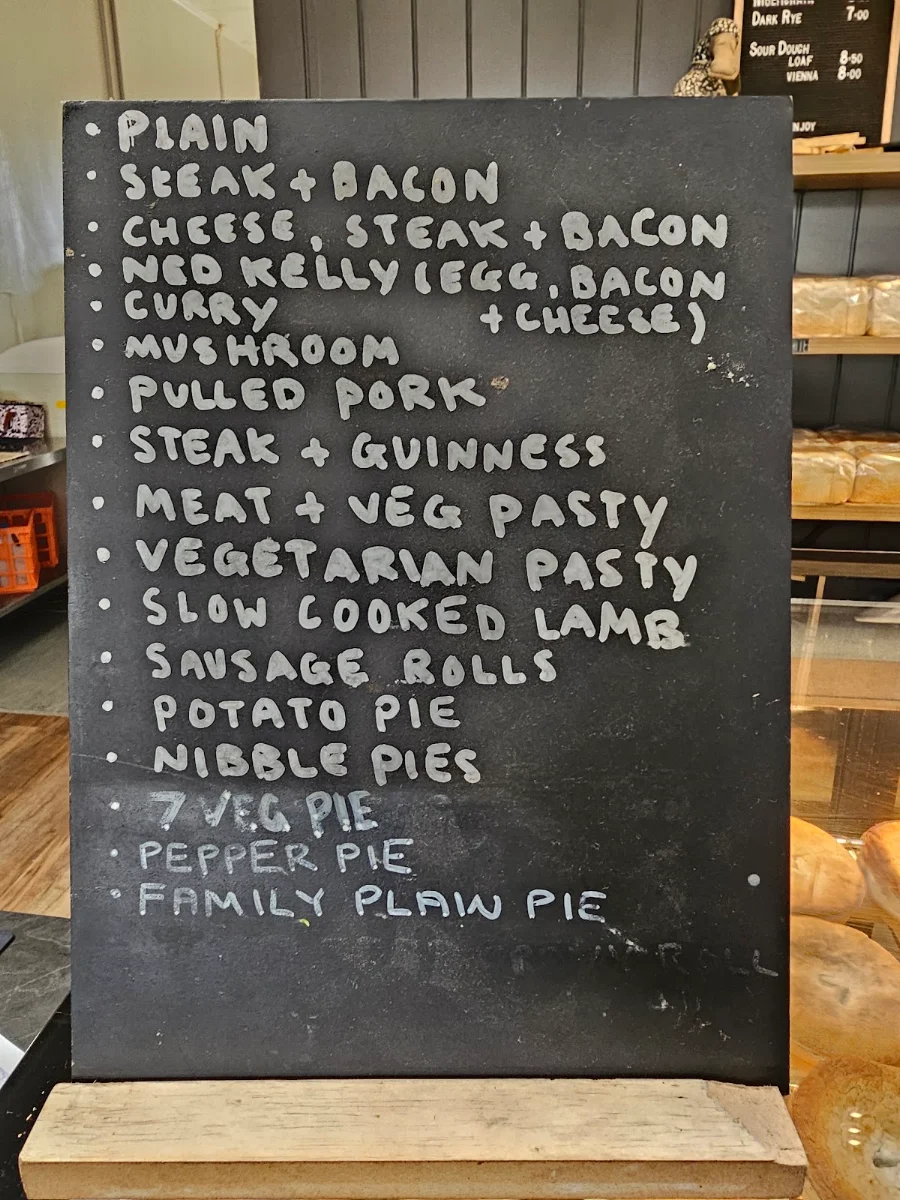 DARK RYE 7.00
SOUR DOUGH
LOAF 8.50
VIENNA 8.00
• PLAIN
• STEAK + BACON
• CHEESE, STEAK + BACON
• NED KELLY (EGG, BACON
+ CHEESE)
• CURRY
• MUSHROOM
• PULLED PORK
• STEAK + GUINNESS
• MEAT + VEG PASTY
• VEGETARIAN PASTY
• SLOW COOKED LAMB
• SAUSAGE ROLLS
• POTATO PIE
• NIBBLE PIES
• 7 VEG PIE
• PEPPER PIE
• FAMILY PLAIN PIE